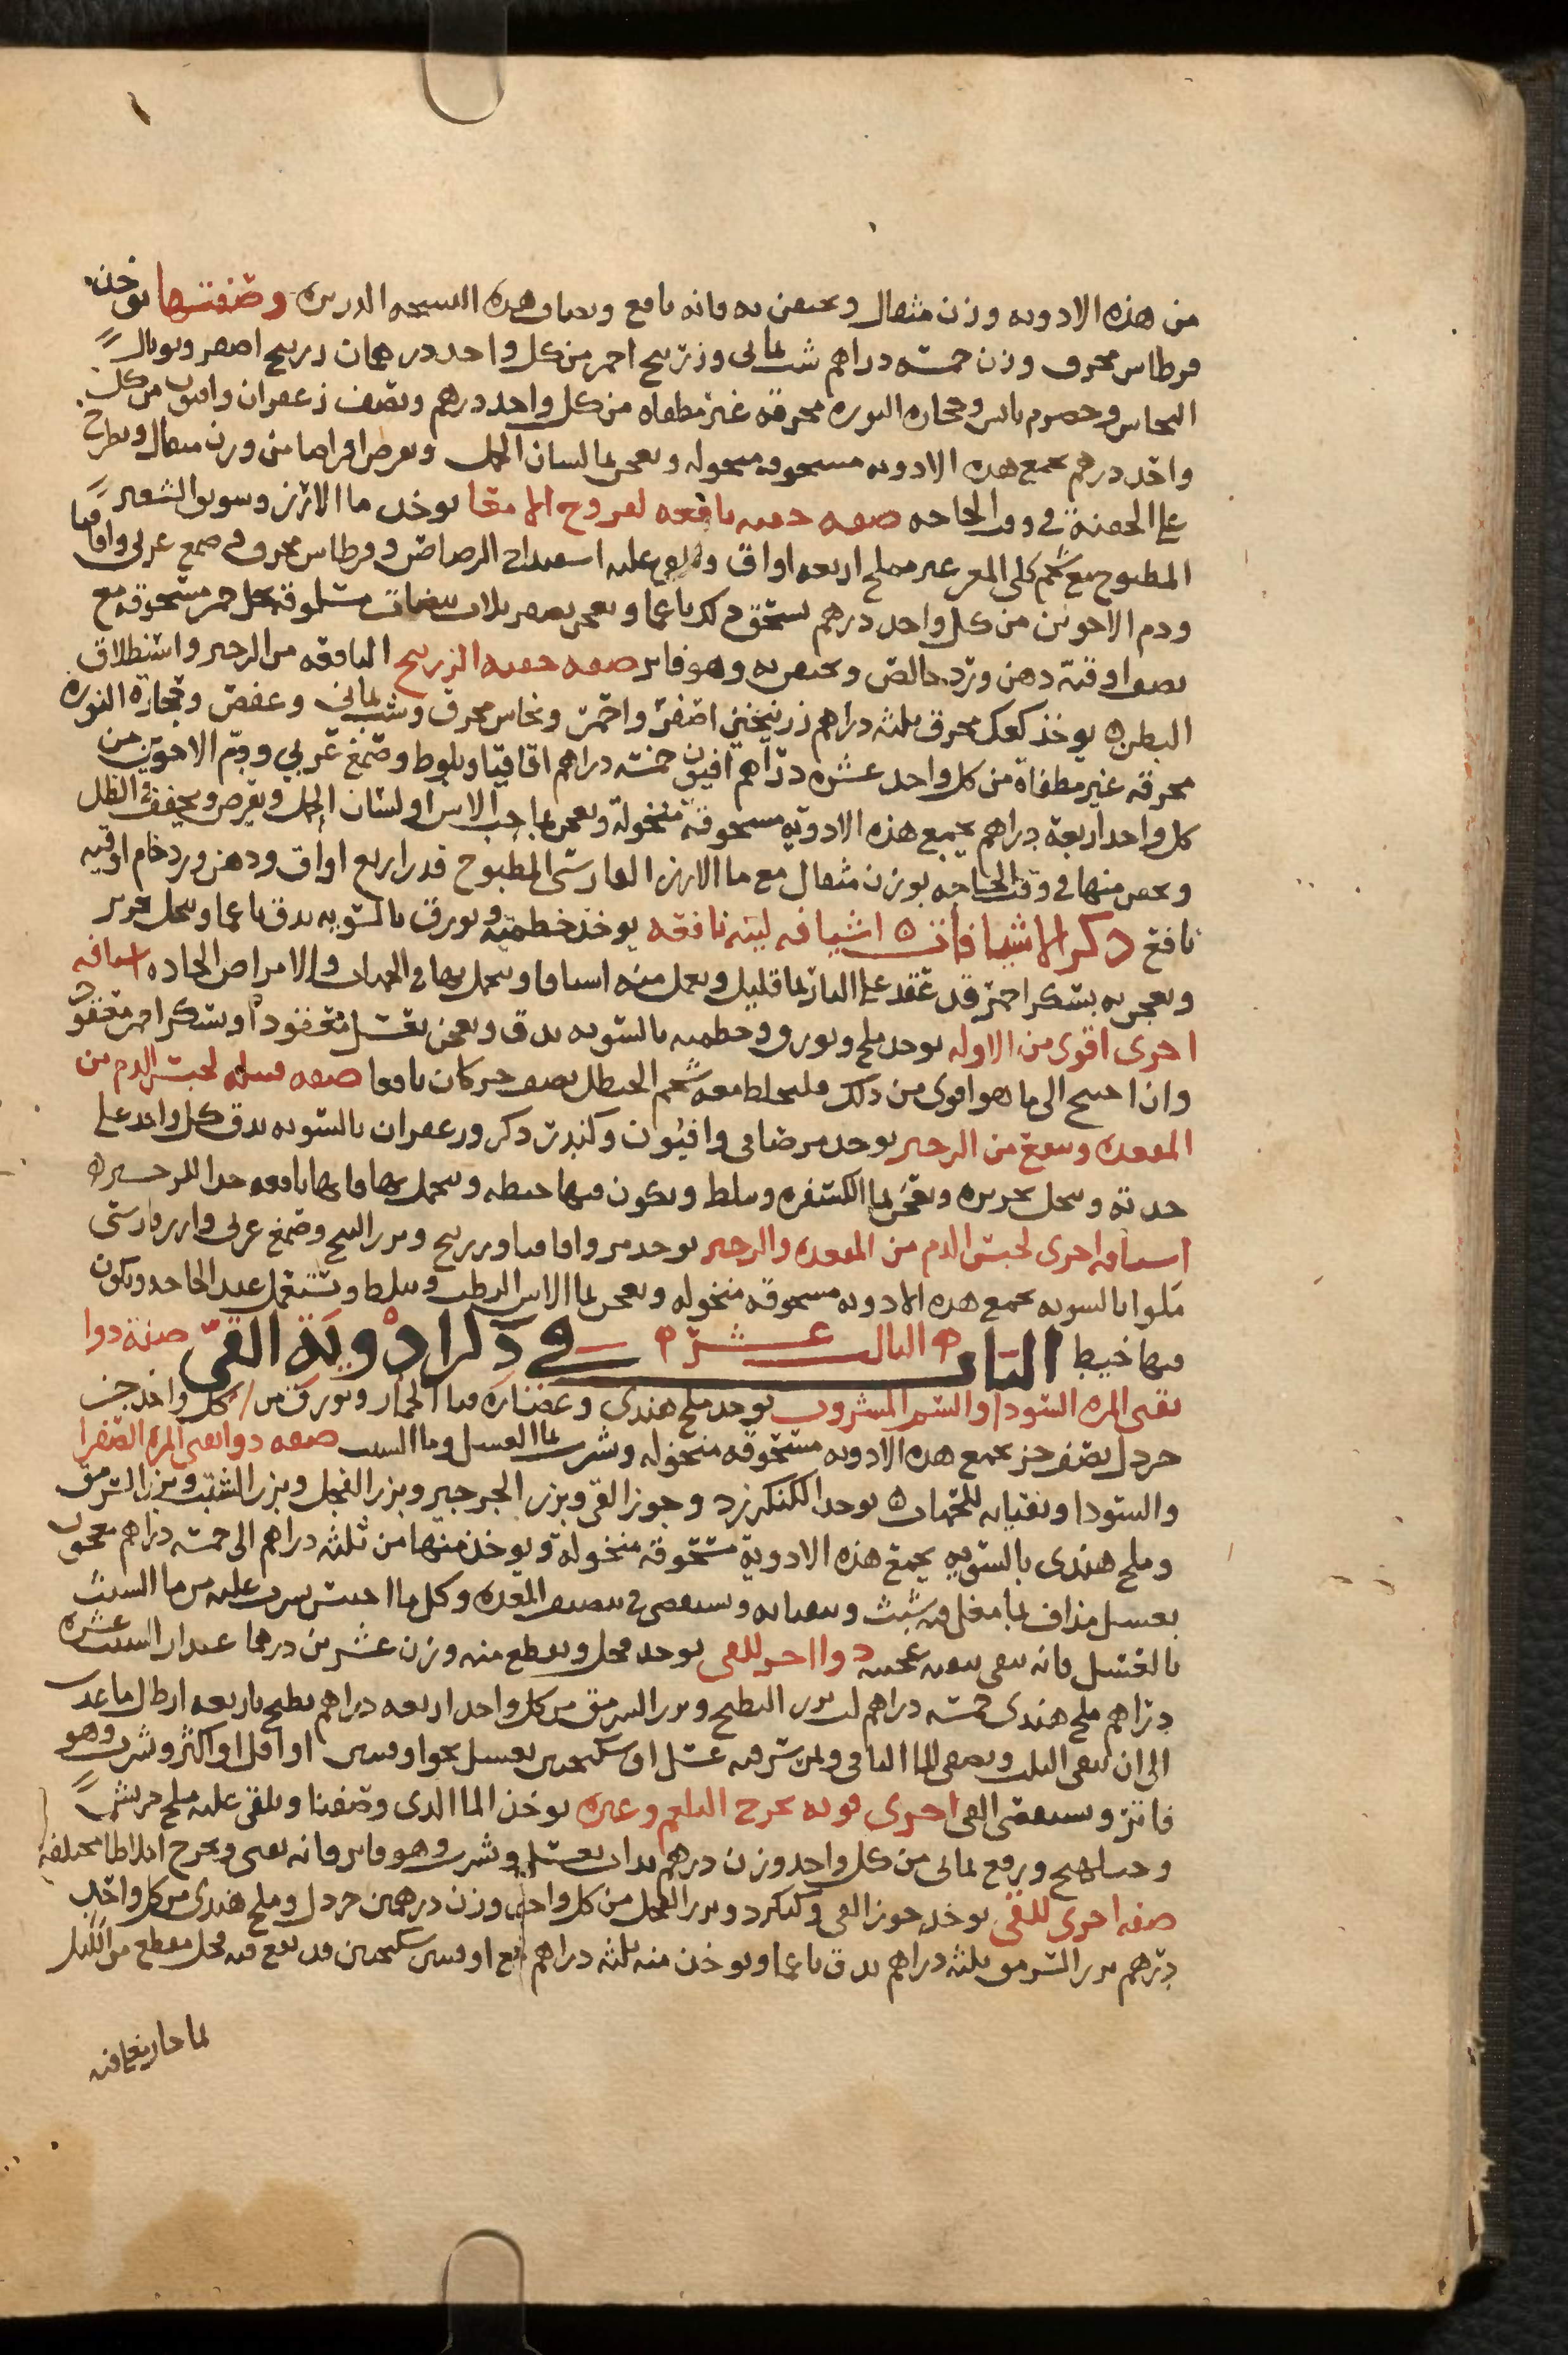 من هذه الادويه وزن مثقال ويحتقن به فانه نافع ويضاف هذه النسخه وصفتها يوخذ
قرطاس محرق وزن خمسه دراهم شب يماني وزرنيخ احمر من كل واحد درهمان زرنيخ اصفر وتوبال
النحاس وحصرم يابس وحجاره النوره محرقه غير مطفاه من كل واحد درهم ونصف زعفران وافيون من كل
واحد درهم يجمع هذه الادويه مسحوقه منخوله ويعجن بما لسان الحمل ويقرص اقراصا من وزن مثقال ويطرح
على الحقنة في وقت الحاجه صفه حقنه نافعه لقروح الامعا يوخذ ما الارز وسويق الشعير
المطبوخ مع شحم كلى المعز غير مملح اربعه اواق ويلقى عليه اسفيداج الرصاص وقرطاس محرق وصمغ عربي واقاقيا
ودم الاخوين من كل واحد درهم يسحق ذلك ناعما ويعجن بصفر ثلاث بيضات مسلوقه بخل خمر مسحوقه مع
نصف اوقيه دهن ورد خالص ويحتقن به وهو فاتر صفه حقنه الزرنيخ النافعه من الزحير واستطلاق
البطن ٥ يوخذ كعك محرق ثلثه دراهم زرنيخين اصفر واحمر ونحاس محرق وشب يماني وعفص وحجارة النوره
محرقه غير مطفاة من كل واحد عشره دراهم افيون خمسه دراهم اقاقيا وبلوط وصمغ عربي ودم الاخوين من
كل واحد اربعة دراهم يجمع هذه الادويه مسحوقة منخولة ويعجن بما حب الاس او لسان الحمل ويقرص ويجفف في الظل
ويحقن منها في وقت الحاجه بوزن مثقال مع ما الارز الفارسي المطبوخ قدر اربع اواق ودهن ورد خام اوقيه
نافع ذكر الاشيافات ٥ اشيافه لينه نافعه يوخذ خطميه وبورق بالسويه يدق ناعما وينخل بحرير
ويعجن به بسكر احمر قد عقد على النار بما قليل ويعمل منه اشيافا ويتحمل بها في الحميات والامراض الحاده اشيافه
اخرى اقوى من الاوله يوخذ ملح وبورق وخطميه بالسويه يدق ويعجن بعسل معقود او بسكر احمر معقود
وان احتيج الى ما هو اقوى من ذلك فليخلط معه شحم الحنظل نصف جز كان نافعا صفه فتيله لحبس الدم من
المقعده وينفع من الزحير يوخذ مر صافي وافيون وكندر ذكر وزعفران بالسويه يدق كل واحد على
حدته وينخل بحريره ويعجن بما الكسفره ويبلط ويكون فيها خيطه ويتحمل بها فانها نافعه جدا للزحير ٥
اشيافه اخرى لحبس الدم من المقعده والزحير يوخذ مر واقاقيا وزرنيخ وبزر البنج وصمغ عربي وارز فارسي
مقلوا بالسويه يجمع هذه الادويه مسحوقه منخوله ويعجن بما الاس الرطب ويبلط ويستعمل عند الحاجه ويكون
فيها خيط الباب الثالث عشر في ذكر ادوية القي صفة دوا
يقي المره السودا والسم المشروب يوخذ ملح هندي وعصاره قثا الحمار وبورق من كل واحد جز
خردل نصف جز يجمع هذه الادويه مسحوقه منخوله ويشرب بما العسل وما الشبت صفه دوا يقي المره الصفرا
والسودا ونقيانه للحميات ٥ يوخذ الكنكرزد وجوز القي وبزر الجرجير وبزر الفجل وبزر الشبث وبزر السرمق
وملح هندي بالسويه يجمع هذه الادوية مسحوقه منخولة ويوخذ منها من ثلثه دراهم الى خمسه دراهم معجون
بعسل يذاف بما مغلي فيه شبث ويتقيا به ويستقصى في تنظيف المعده وكل ما احتبس يشرب عليه من ما الشبث
بالعسل فانه ينقي تنقيه عجيبه دوا اخر للقي يوخذ فجل ويقطع منه وزن عشرين درهما عيدان الشبث عشره
دراهم ملح هندي خمسه دراهم لب بزر البطيخ وبزر السرمق من كل واحد اربعه دراهم يطبخ باربعه ارطال ما عذب
الى ان يبقى الثلث ويصفى الما الباقي ويمرس فيه عسل او سكنجبين بعسل نحو اوقيتين او اقل او اكثر ويشرب وهو
فاتر ويستقصى القي اخرى قويه تخرج البلغم وغيره يوخذ الما الذي وصفنا ويلقى عليه ملح جريش
من كل واحد وزن درهم يداف بعسل ويشرب وهو فاتر فانه يقي ويخرج اخلاطا مختلفه
صفه اخرى للقي يوخذ جوز القي وكنكرزد وبزر الفجل من كل واحد وزن درهمين خردل وملح هندي من كل واحد
درهم بزر السرمق ثلثه دراهم يدق ناعما ويوخذ منه ثلثه دراهم مع اوقيتين سكنجبين قد نقع فيه فجل مقطع من الليل
بما حار